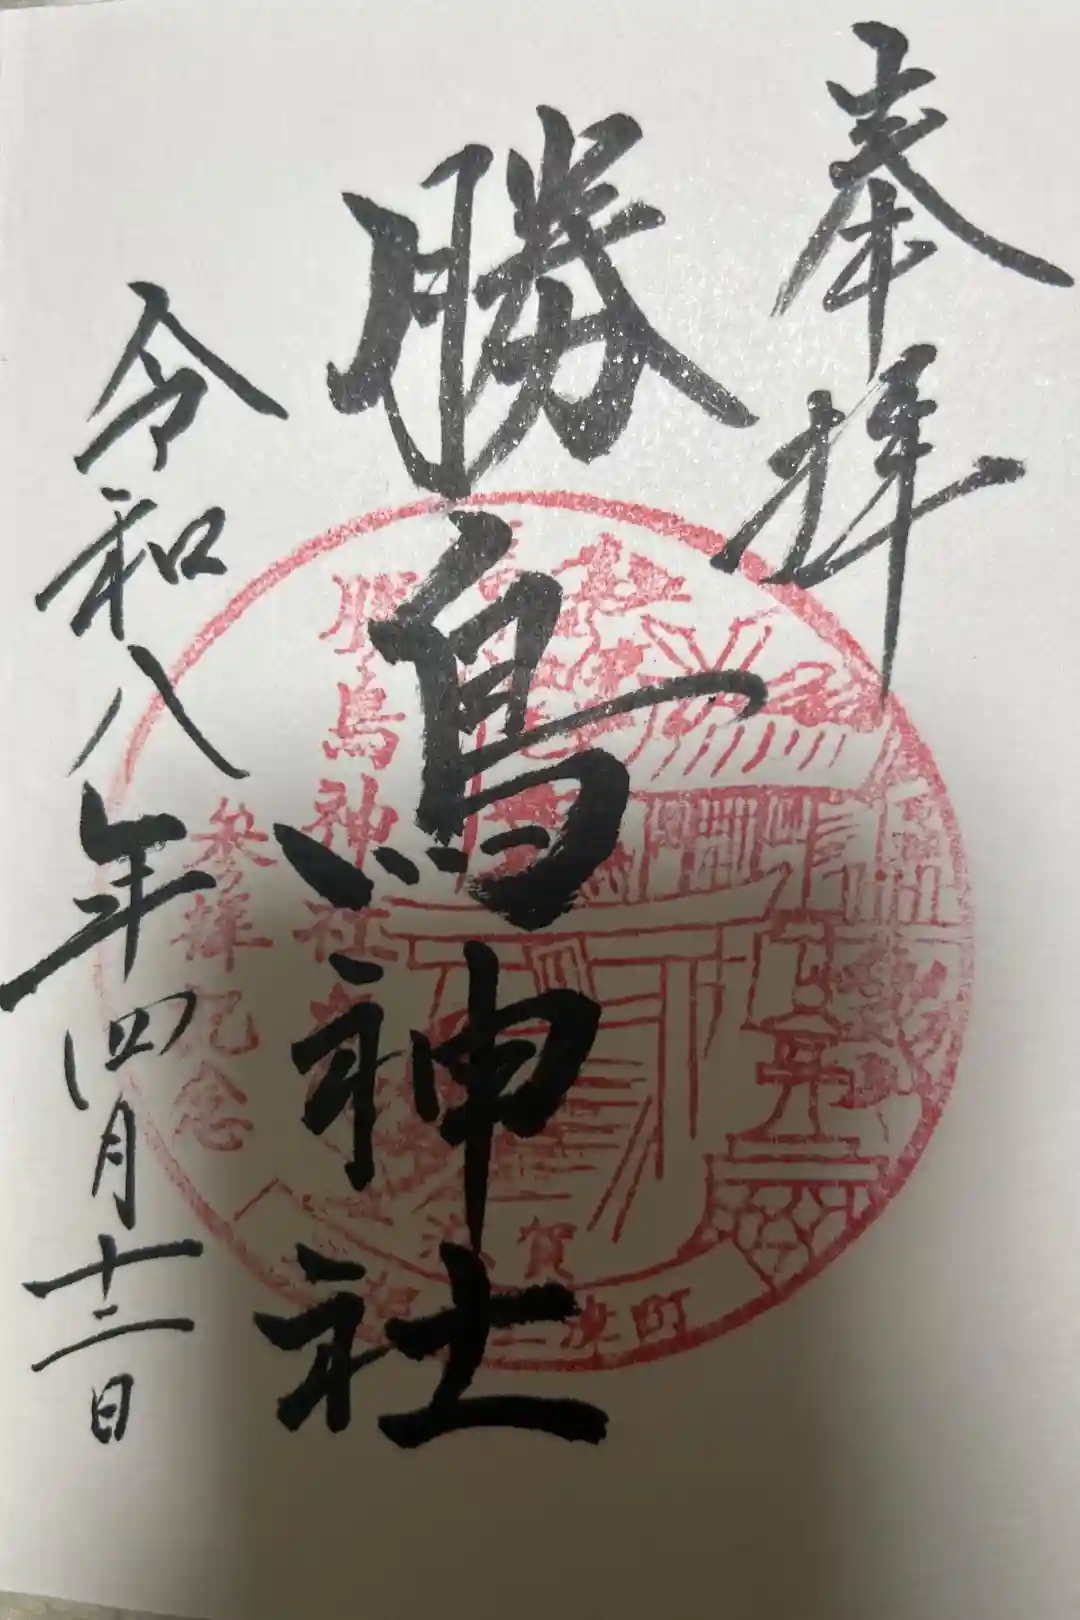 奉拝
勝鳥神社
令和八年四月十二日
勝鳥神社
参拝記念